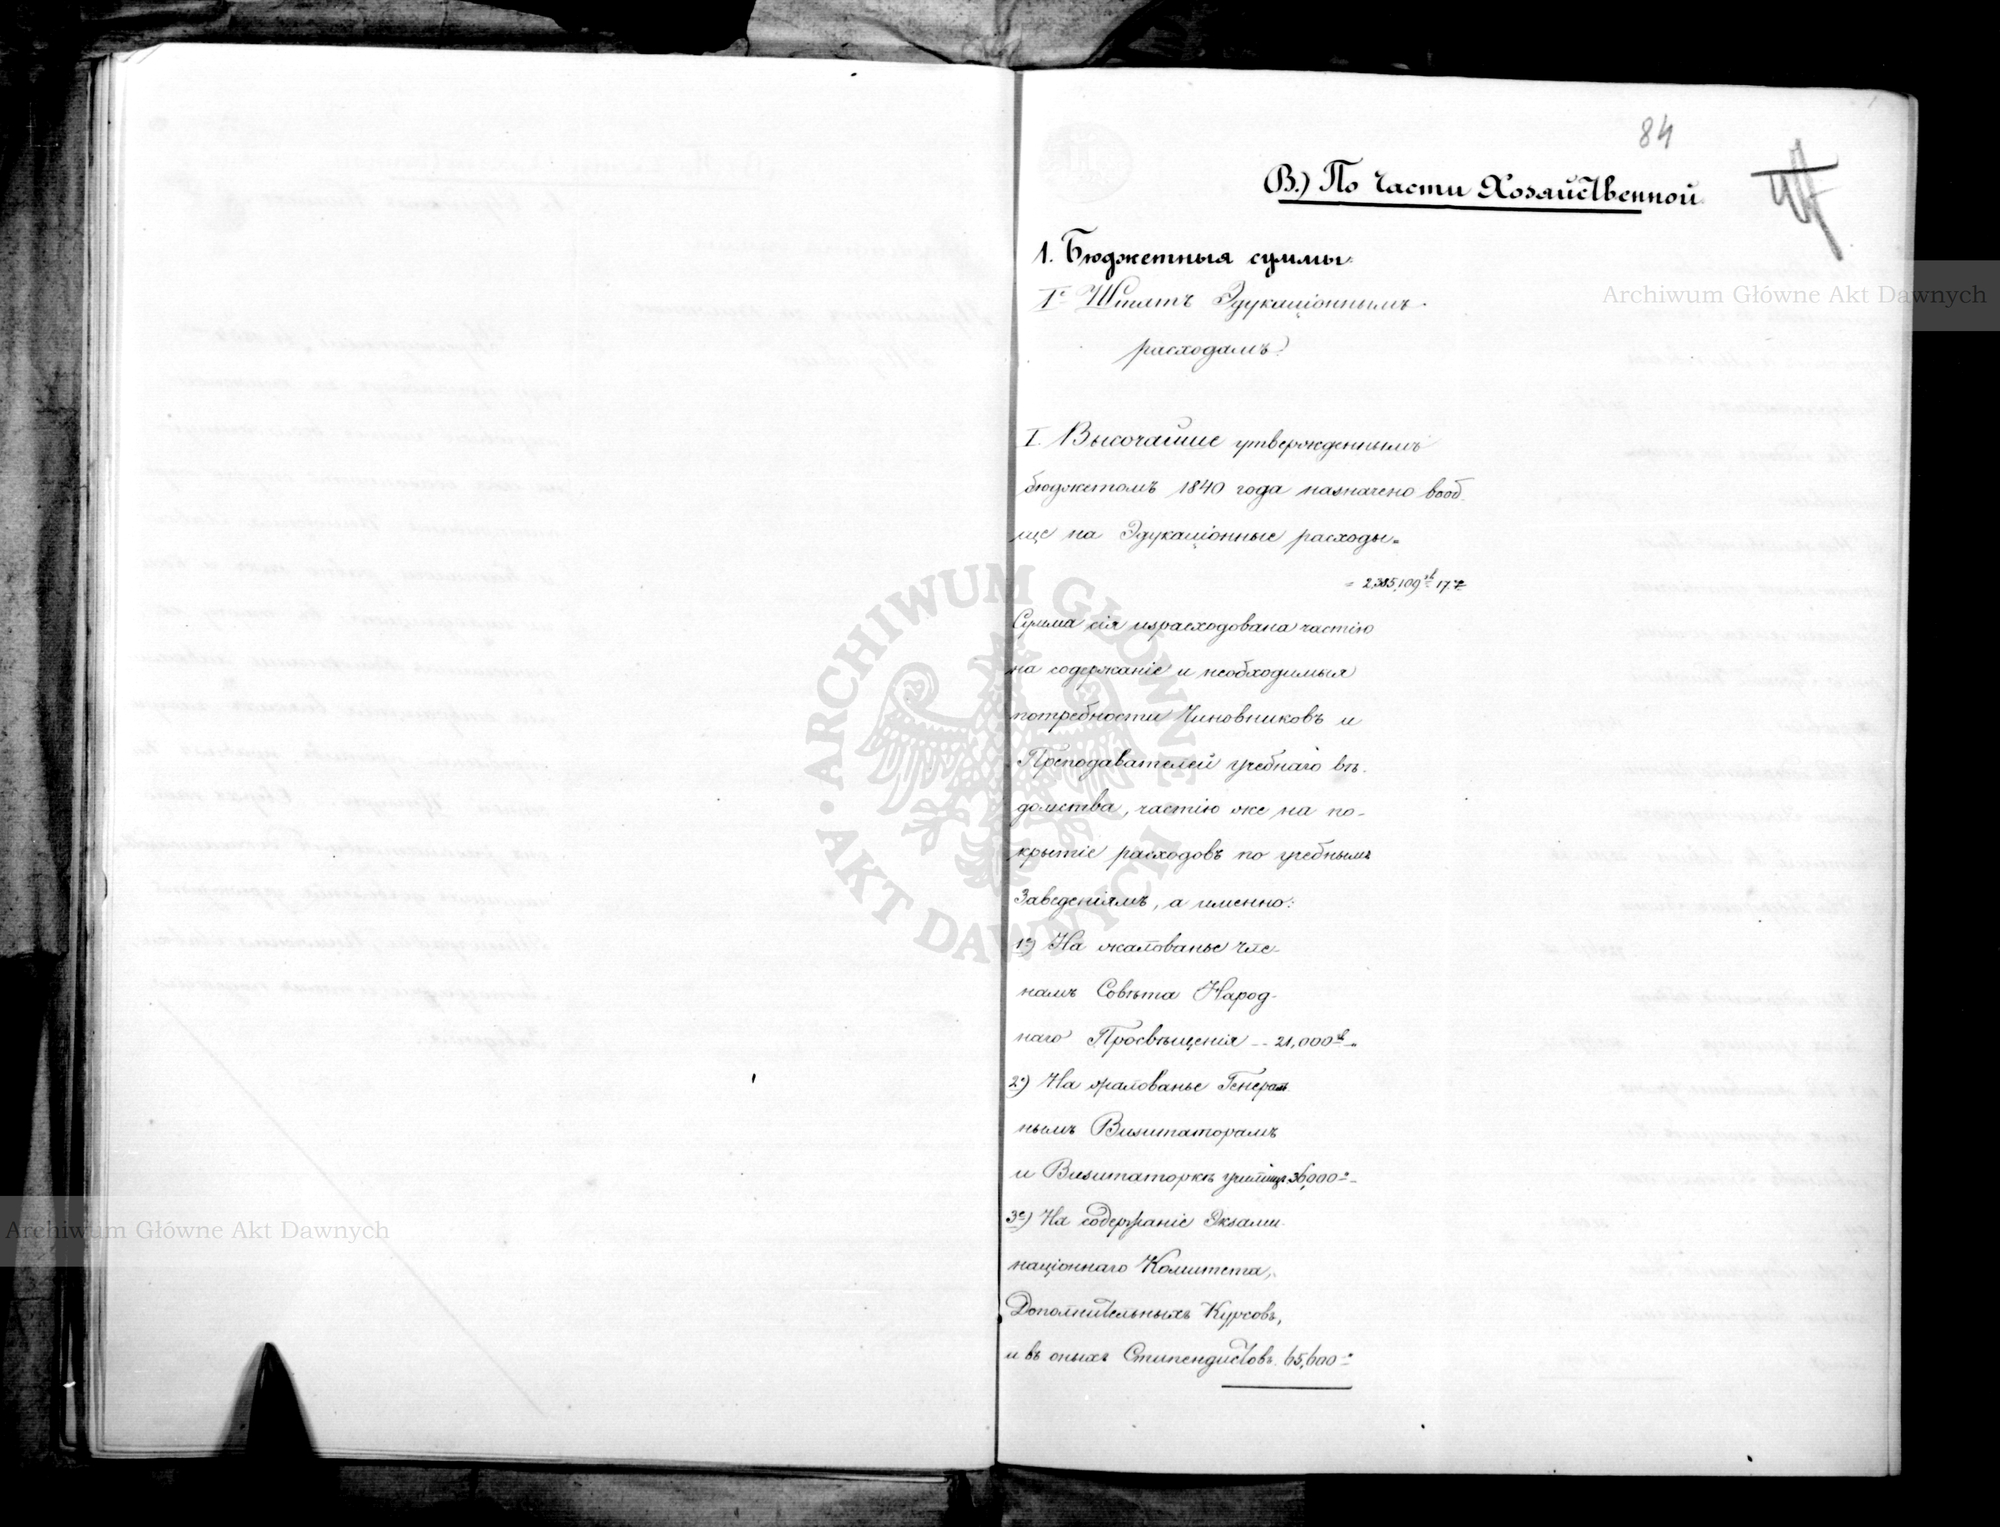 84
В.) По Части Хозяйственной
1. Бюджетныя суммы.
Iе Штатъ Эдукаціоннымъ
расходамъ.
I. Высочайше утвержденнымъ
бюджетомъ 1840 года назначено вооб-
ще на Эдукаціонные расходы„
= 2,385,109 зл 17. г
Сумма сія израсходована частію
на содержаніе и необходимыя
потребности Чиновниковъ и
Преподавателей учебнаго вѣ-
домства, частію же на по-
крытіе расходовъ по учебнымъ
Заведеніямъ, а именно:
1е) На жалованье Чле-
намъ Совѣта Народ-
наго Просвѣщенія -- 21,000 зл „
2е) На жалованье Генераль-
нымъ Визитаторамъ
и Визитаторкѣ училищъ 36,000 „ -
3е) На содержаніе Экзами-
націоннаго Комитета,
Дополнительныхъ Курсовъ,
и въ оныхъ Стипендистовъ. 65,600 - „
ARCHIWUM GŁÓWNE AKT DAWNYCH
Archiwum Główne Akt Dawnych
Archiwum Główne Akt Dawnych